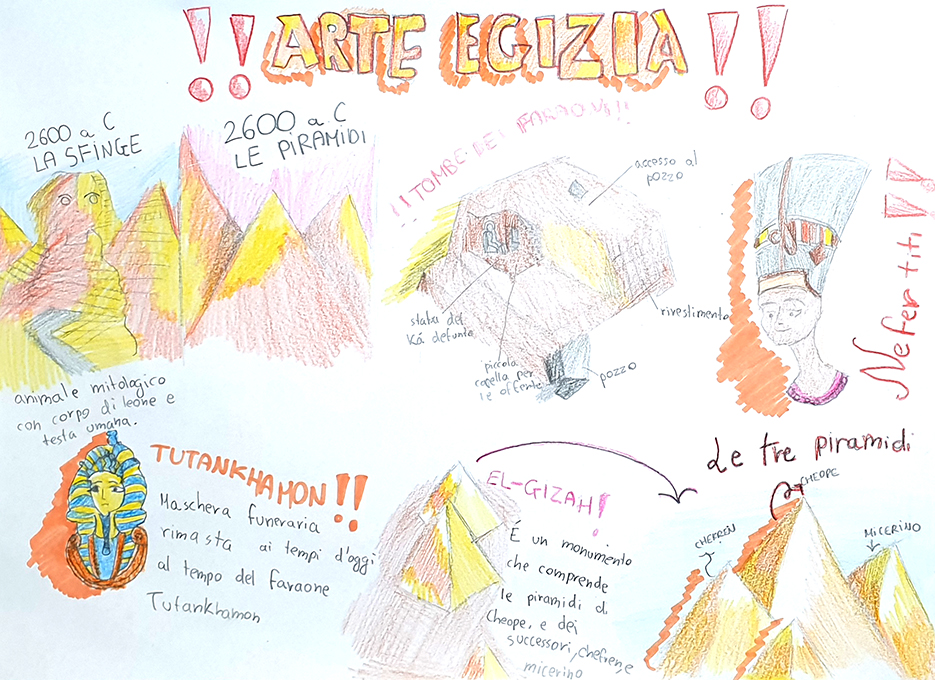 !! ARTE EGIZIA !!
2600 a C
LA SFINGE
2600 a C
LE PIRAMIDI
!! TOMBE DEI FARAONI!!
accesso al
pozzo
statua del
Ká defunto
piccola
capella per
le offerte
pozzo
rivestimento
Nefertiti !!
animale mitologico
con corpo di leone e
testa umana.
TUTANKHAMON !!
Maschera funeraria
rimasta ai tempi d'oggi
al tempo del faraone
Tutankhamon
EL-GIZAH!
É un monumento
che comprende
le piramidi di
Cheope, e dei
successori, chefren, e
micerino
Le tre piramidi
CHEOPE
CHEFREN
MICERINO